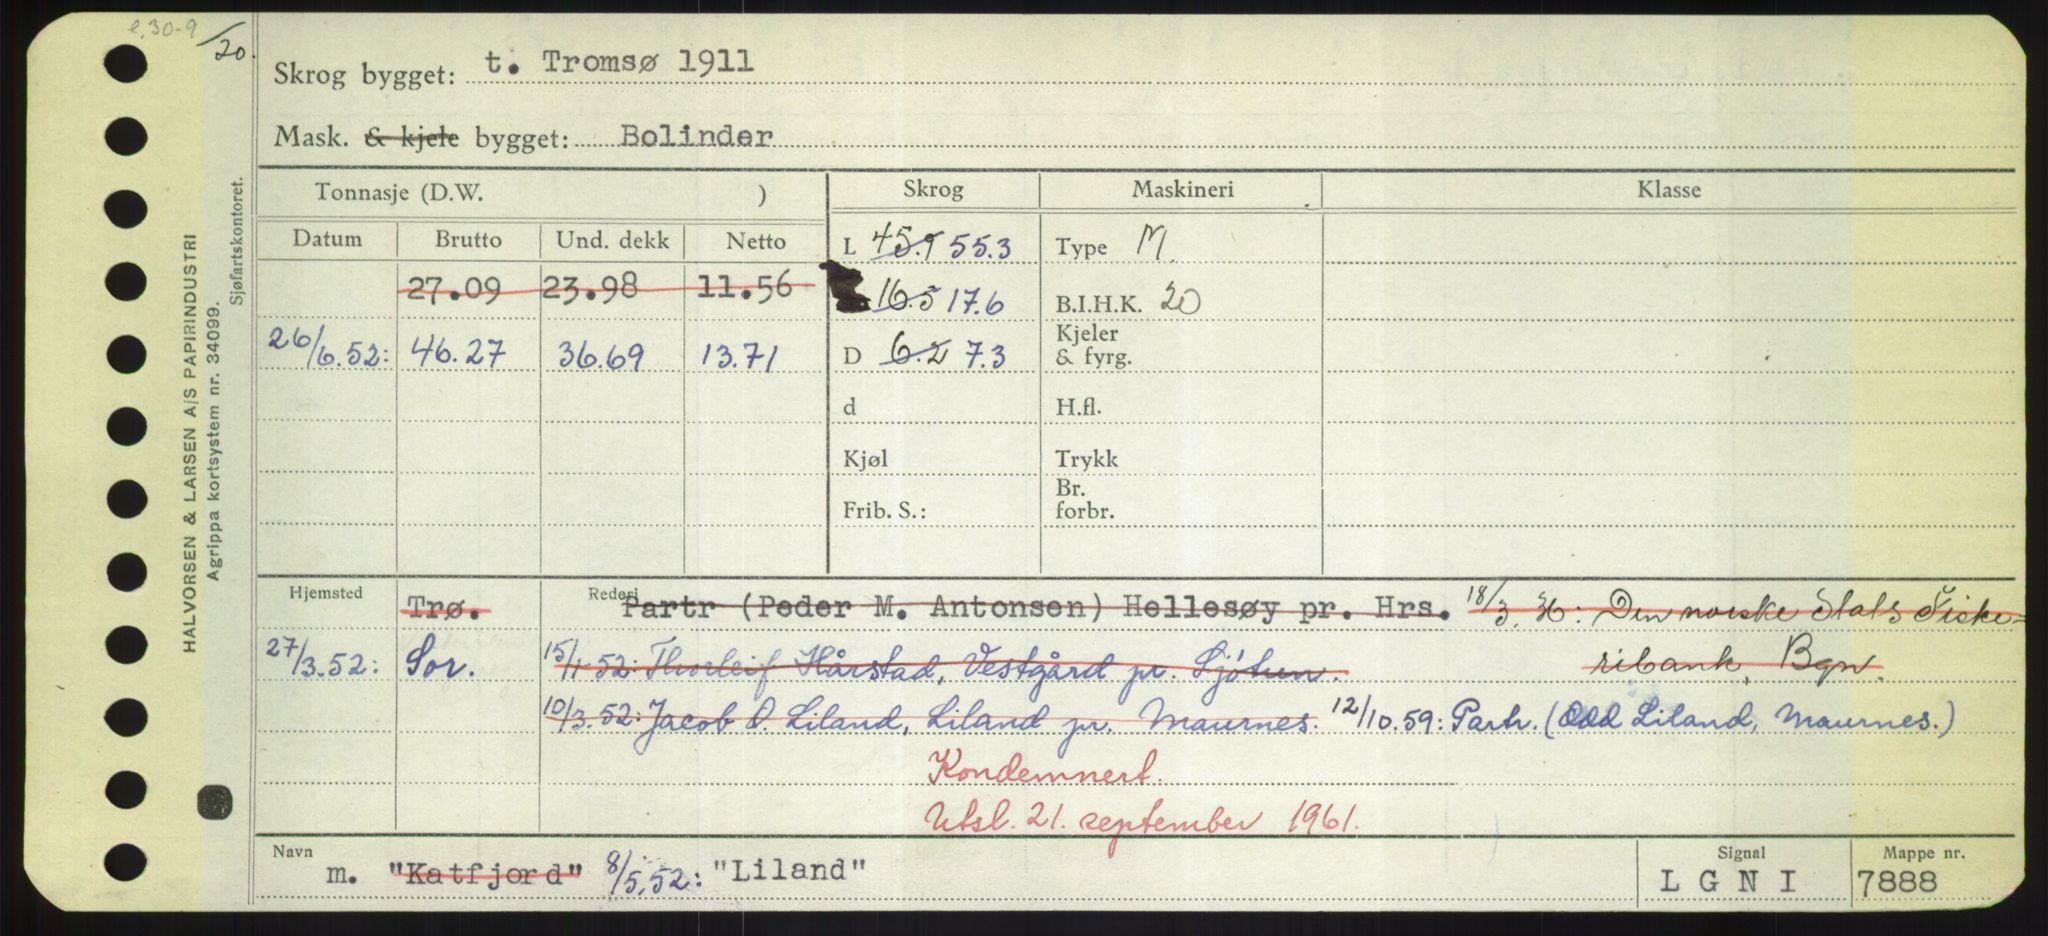 e. 30-9
/20.
HALVORSEN & LARSEN A/S PAPIRINDUSTRI
Agrippa kortsystem nr. 34099.
Sjøfartskontoret.
Skrog bygget: t. Tromsø 1911
Mask. & kjele bygget: Bolinder
Tonnasje (D.W. ) Skrog Maskineri Klasse
Datum Brutto Und. dekk Netto L 45.9 55.3 Type M
27.09 23.98 11.56 16.5 17.6 B.I.H.K. 20
26/6.52: 46.27 36.69 13.71 D 6.2 7.3 Kjeler & fyrg.
d H.fl.
Kjøl Trykk
Frib. S.: Br. forbr.
Hjemsted Trø. Rederi Partr (Peder M. Antonsen) Hellesøy pr. Hrs. 18/3. : Den norske Stats Fiske=
27/3.52: Sor. 15/1-52: Thorleif Hårstad, Vestgård pr. Sjøtun. ribank, Bgn.
10/3.52: Jacob O. Liland, Liland pr. Maurnes. 12/10.59: Partr. (Odd Liland, Maurnes.)
Kondemnert.
Utsl. 21. september 1961.
Navn m. "Katfjord" 8/5.52: "Liland" Signal L G N I Mappe nr. 7888